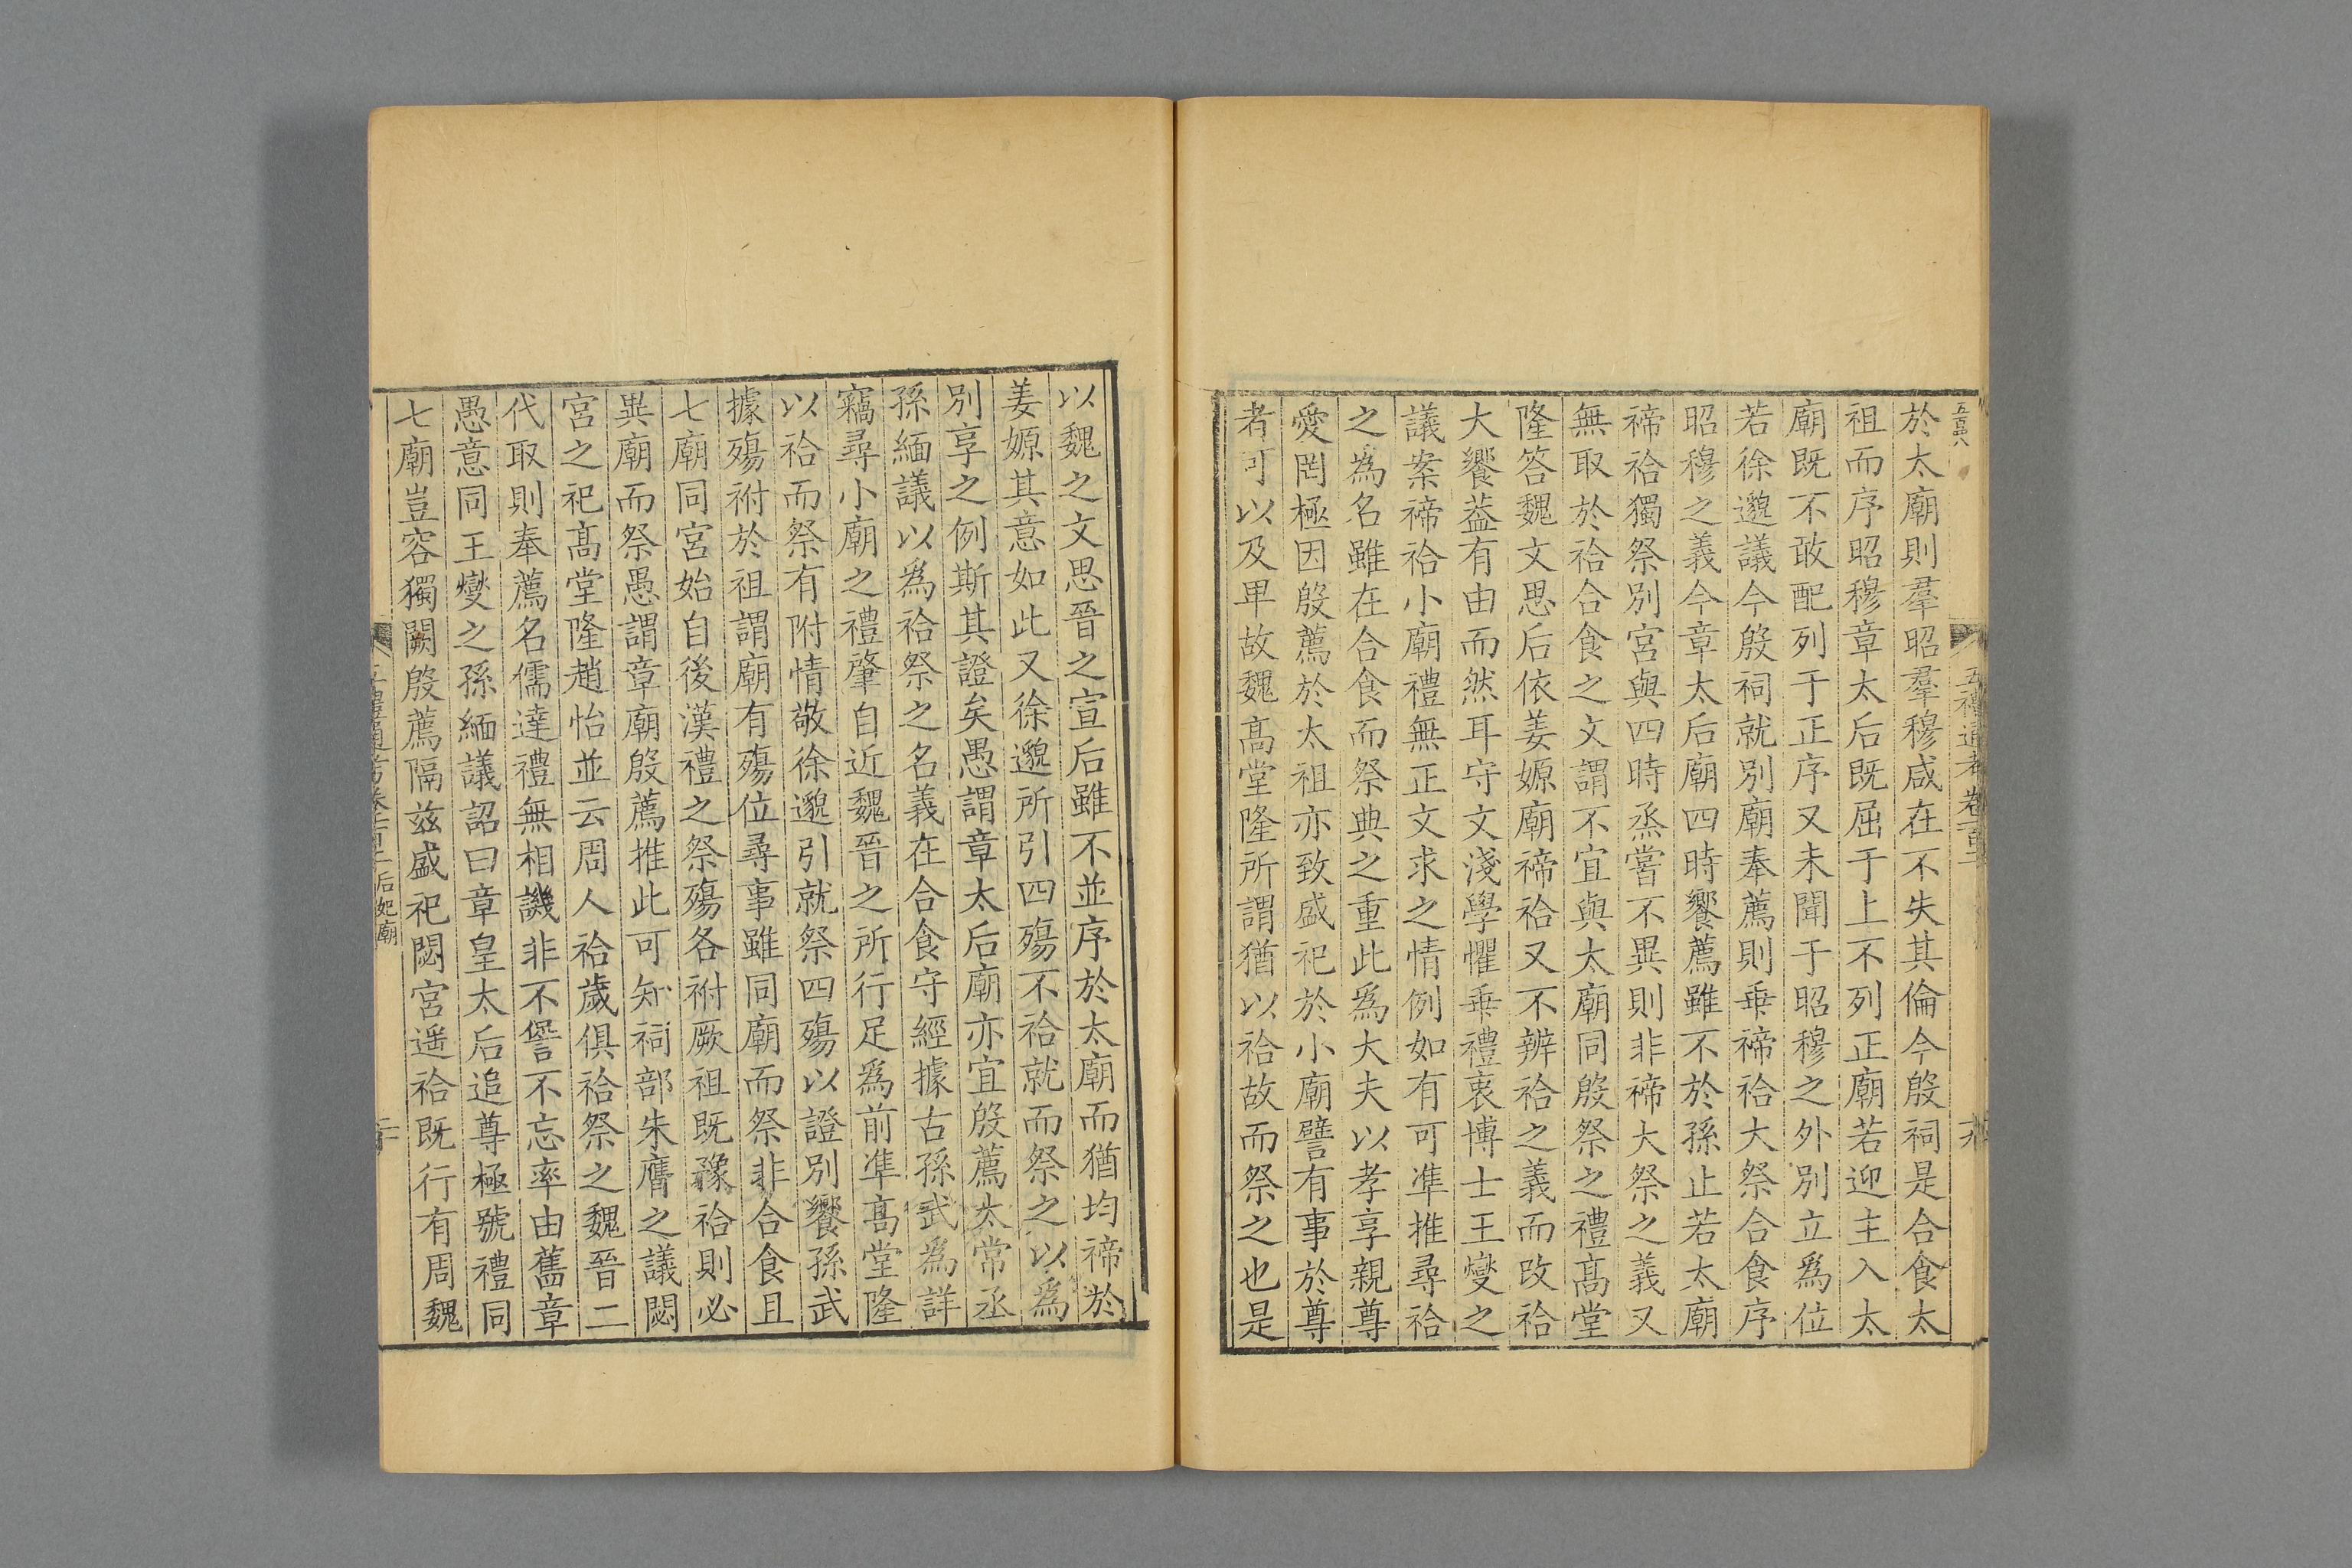 於太廟則羣昭羣穆咸在不失其倫今殷祠是合食太
祖而序昭穆章太后既屈于上不列正廟若迎主入太
廟既不敢配列于正序又未聞于昭穆之外別立爲位
若徐邈議今殷祠就別廟奉薦則乖禘祫大祭合食序
昭穆之義今章太后廟四時饗薦雖不於孫止若太廟
禘祫獨祭別宮與四時烝嘗不異則非禘大祭之義又
無取於祫合食之文謂不宜與太廟同殷祭之禮髙堂
隆答魏文思后依姜嫄廟禘祫又不辨祫之義而改祫
大饗葢有由而然耳守文淺學懼乖禮衷博士王燮之
議案禘祫小廟禮無正文求之情例如有可準推尋祫
之爲名雖在合食而祭典之重此爲大夫以孝享親尊
愛罔極因殷薦於太祖亦致盛祀於小廟譬有事於尊
者可以及卑故魏髙堂隆所謂猶以祫故而祭之也是
以魏之文思晉之宣后雖不並序於太廟而猶均禘於
姜嫄其意如此又徐邈所引四殤不祫就而祭之以爲
別享之例斯其證矣愚謂章太后廟亦宜殷薦太常丞
孫緬議以爲祫祭之名義在合食守經據古孫武爲詳
竊尋小廟之禮肇自近魏晉之所行足爲前準髙堂隆
以祫而祭有附情敬徐邈引就祭四殤以證別饗孫武
據殤祔於祖謂廟有殤位尋事雖同廟而祭非合食且
七廟同宮始自後漢禮之祭殤各祔厥祖既豫祫則必
異廟而祭愚謂章廟殷薦推此可知祠部朱膺之議閟
宮之祀髙堂隆趙怡並云周人祫歲俱祫祭之魏晉二
代取則奉薦名儒達禮無相譏非不愆不忘率由舊章
愚意同王燮之孫緬議詔曰章皇太后追尊極號禮同
七廟豈容獨闕殷薦隔兹盛祀閟宮遥祫既行有周魏
后妃廟